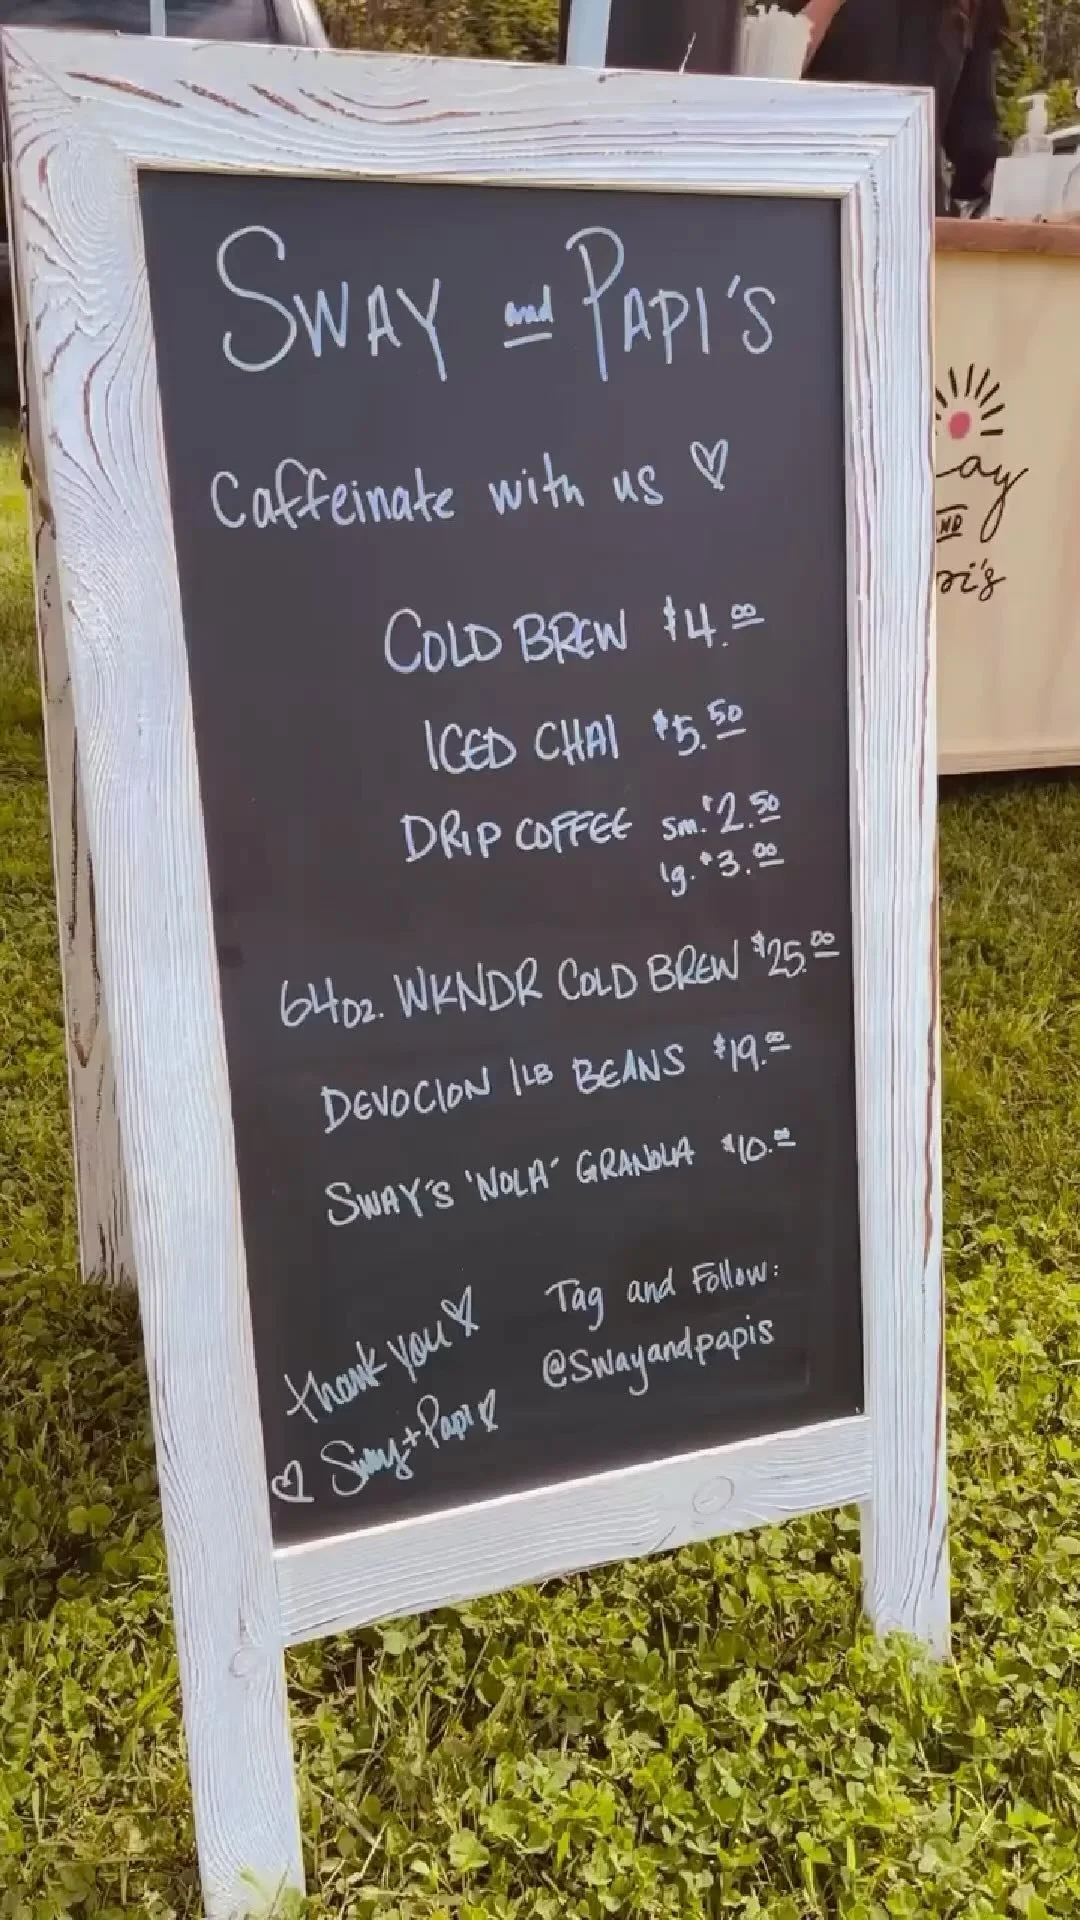 SWAY and PAPI'S
Caffeinate with us ♡
COLD BREW $4.00
ICED CHAI $5.50
DRIP COFFEE sm. $2.50
lg. $3.00
64oz. WKNDR COLD BREW $25.00
DEVOCION 1LB BEANS $19.00
SWAY'S 'NOLA' GRANOLA $10.00
Thank you ♡
♡ Sway + Papi ♡
Tag and Follow:
@Swayandpapis
ay
AND
pi's